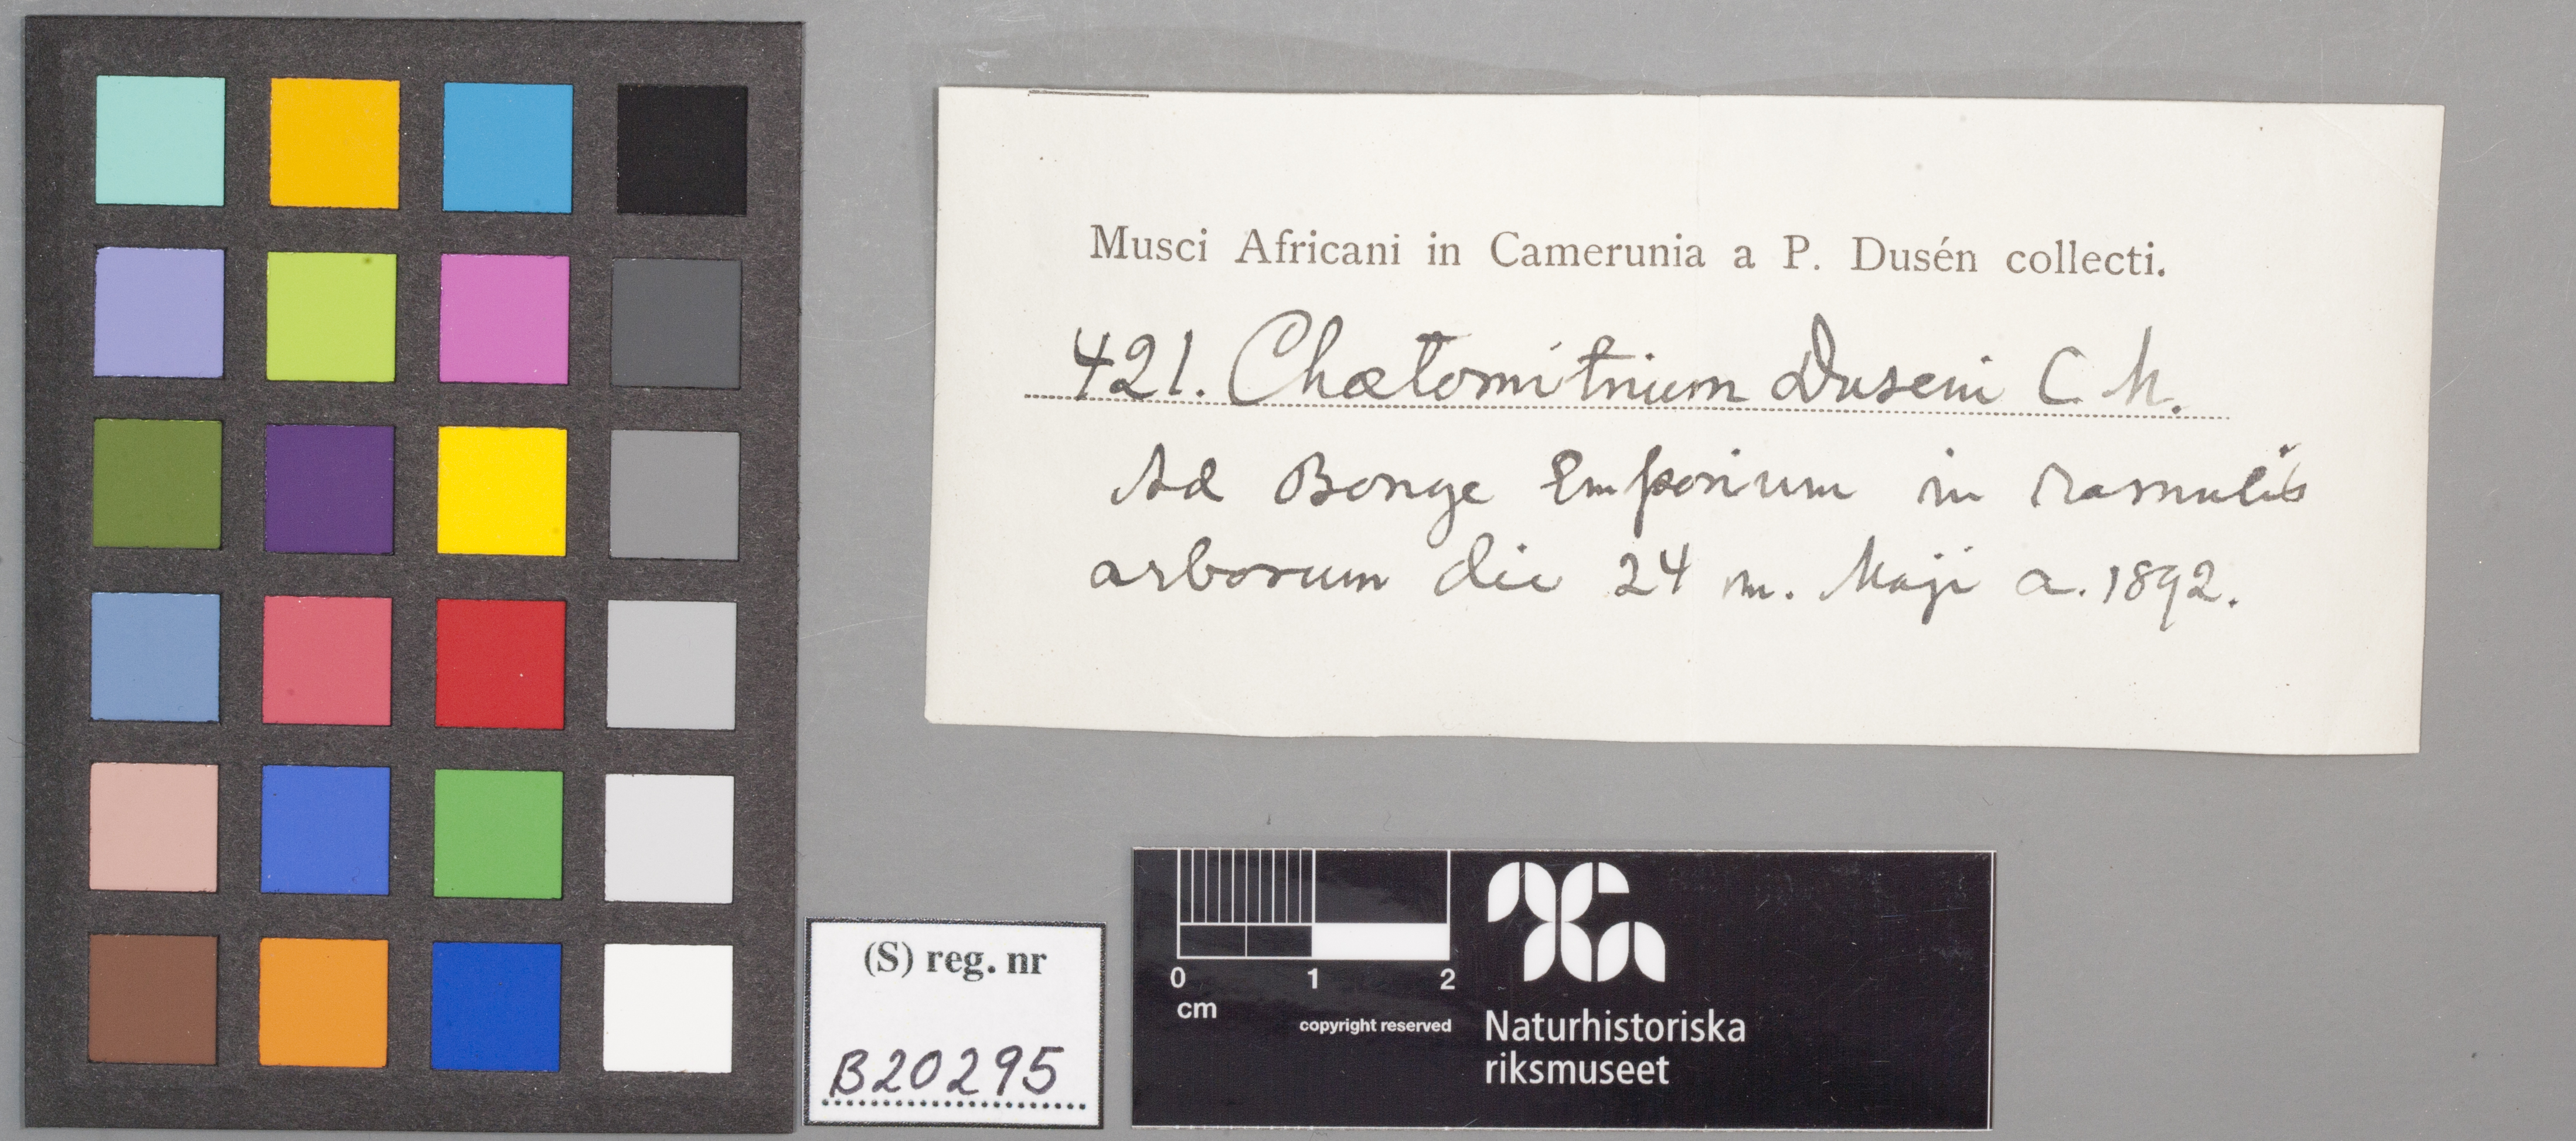 Musci Africani in Camerunia a P. Dusén collecti.
421. Chætomitrium Duseni C. M.
Ad Bonge Emporium in ramulis
arborum die 24 m. Maji a. 1892.
(S) reg. nr
B20295
0 1 2
cm
copyright reserved
Naturhistoriska
riksmuseet